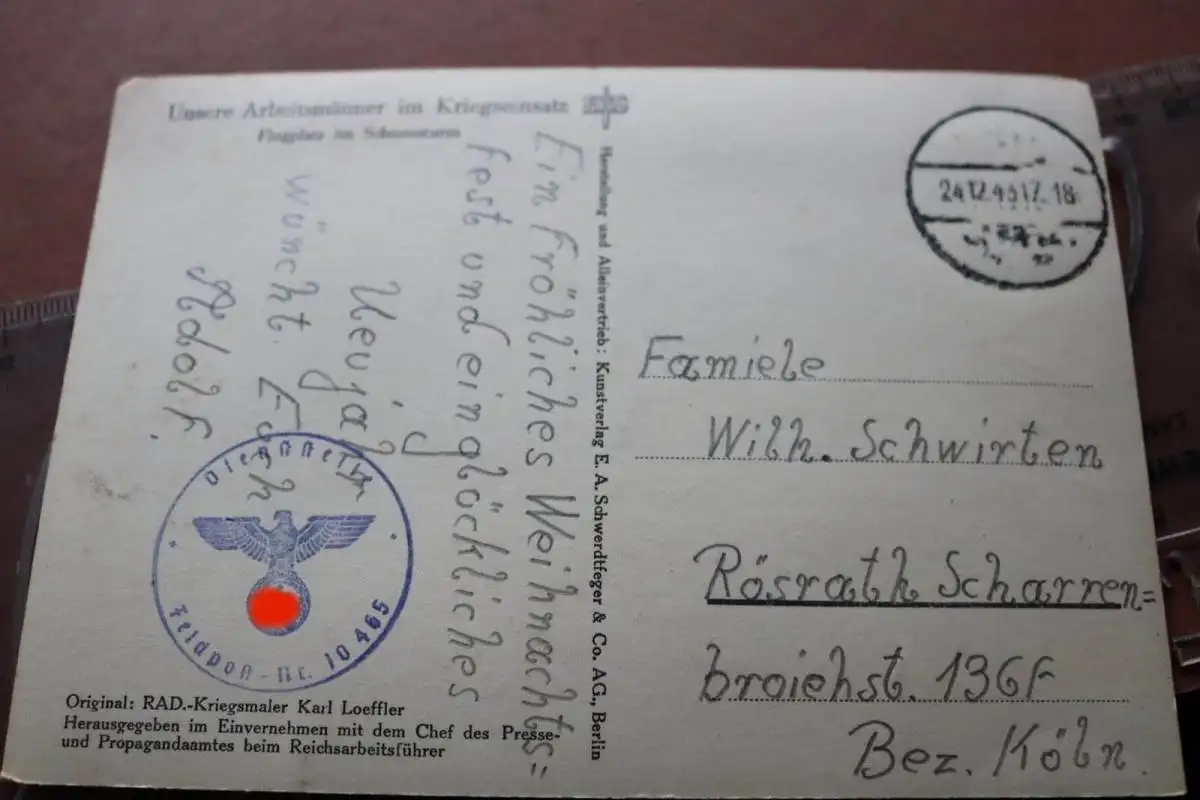 Unsere Arbeitsmänner im Kriegseinsatz
Flugplatz im Schneesturm
Ein fröhliches Weihnachts=
fest und ein glöckliches
Neujah
wönscht Euch
Adolf.
Dienststelle
Feldpost-Nr. 10 465
Original: RAD.-Kriegsmaler Karl Loeffler
Herausgegeben im Einvernehmen mit dem Chef des Presse-
und Propagandaamtes beim Reichsarbeitsführer
Herstellung und Alleinvertrieb: Kunstverlag E. A. Schwerdtfeger & Co. AG., Berlin
24.12.43 17-18
Famiele
Wilh. Schwirten
Rösrath Scharren=
broichst. 136F
Bez. Köln.